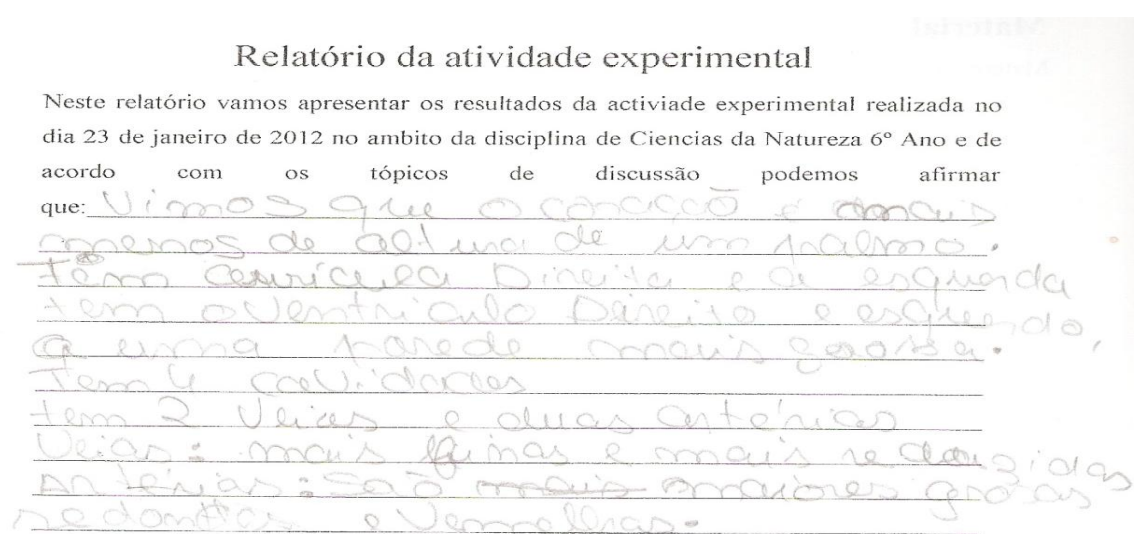 Relatório da atividade experimental
Neste relatório vamos apresentar os resultados da activiade experimental realizada no
dia 23 de janeiro de 2012 no ambito da disciplina de Ciencias da Natureza 6º Ano e de
acordo com os tópicos de discussão podemos afirmar
que: Vimos que o coração é mais
menos de altura de um palmo.
Têm aurícula Direita e a esquerda
tem o Ventriculo Direito e esquerdo,
a uma parede mais grossa.
Tem 4 cavidades
tem 2 Veias e duas artérias
Veias: mais finas e mais reduzidas
Artérias: São mais maiores grosas
redontas e Vermelhas.